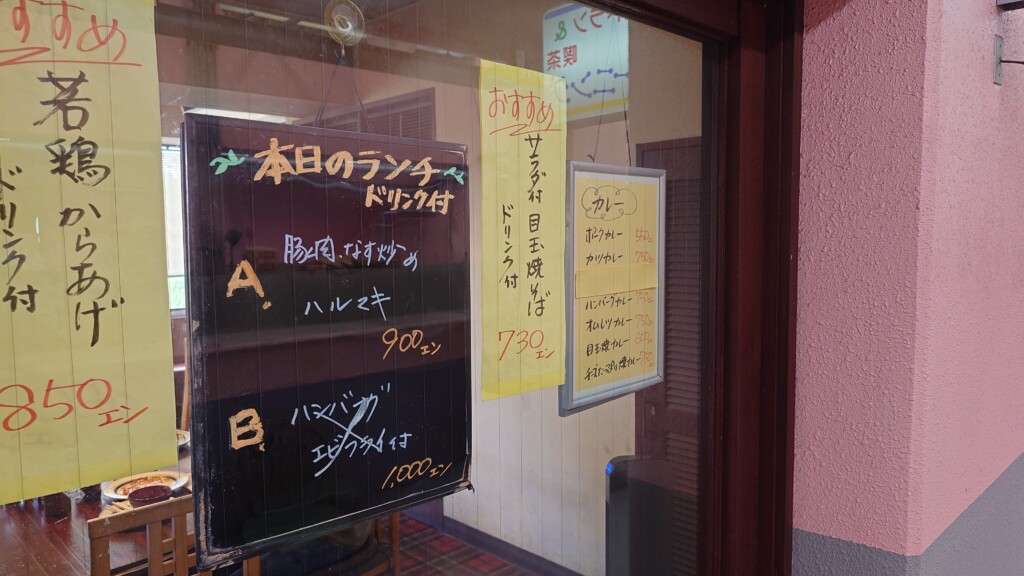 すすめ
若鶏からあげ
ドリンク付
850エン
本日のランチ
ドリンク付
A.
豚肉、なす炒め
ハルマキ
900エン
B.
ハンバーグ
エビフライ付
1,000エン
おすすめ
サラダ付 目玉焼そば
ドリンク付
730エン
喫茶
カレー
ポークカレー
カツカレー
ハンバーグカレー
オムレツカレー
目玉焼カレー